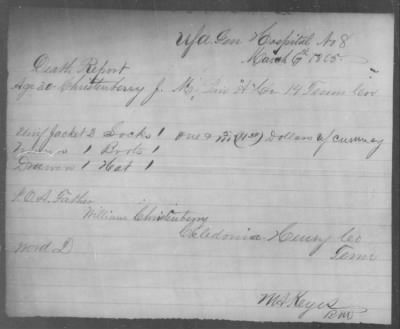 USA Gen Hospital No 8
March 6th 1865
Death Report
Age 20 Christenberry J. "H" Co 19 Tenn Cav
Jacket 2 Socks 1 one & Dollars of currency
1 Boots 1
Drawers 1 Hat 1
P.O.A. Father
William Christenberry
Caledonia Henry Co
Tenn
Ward D
M A Keyes